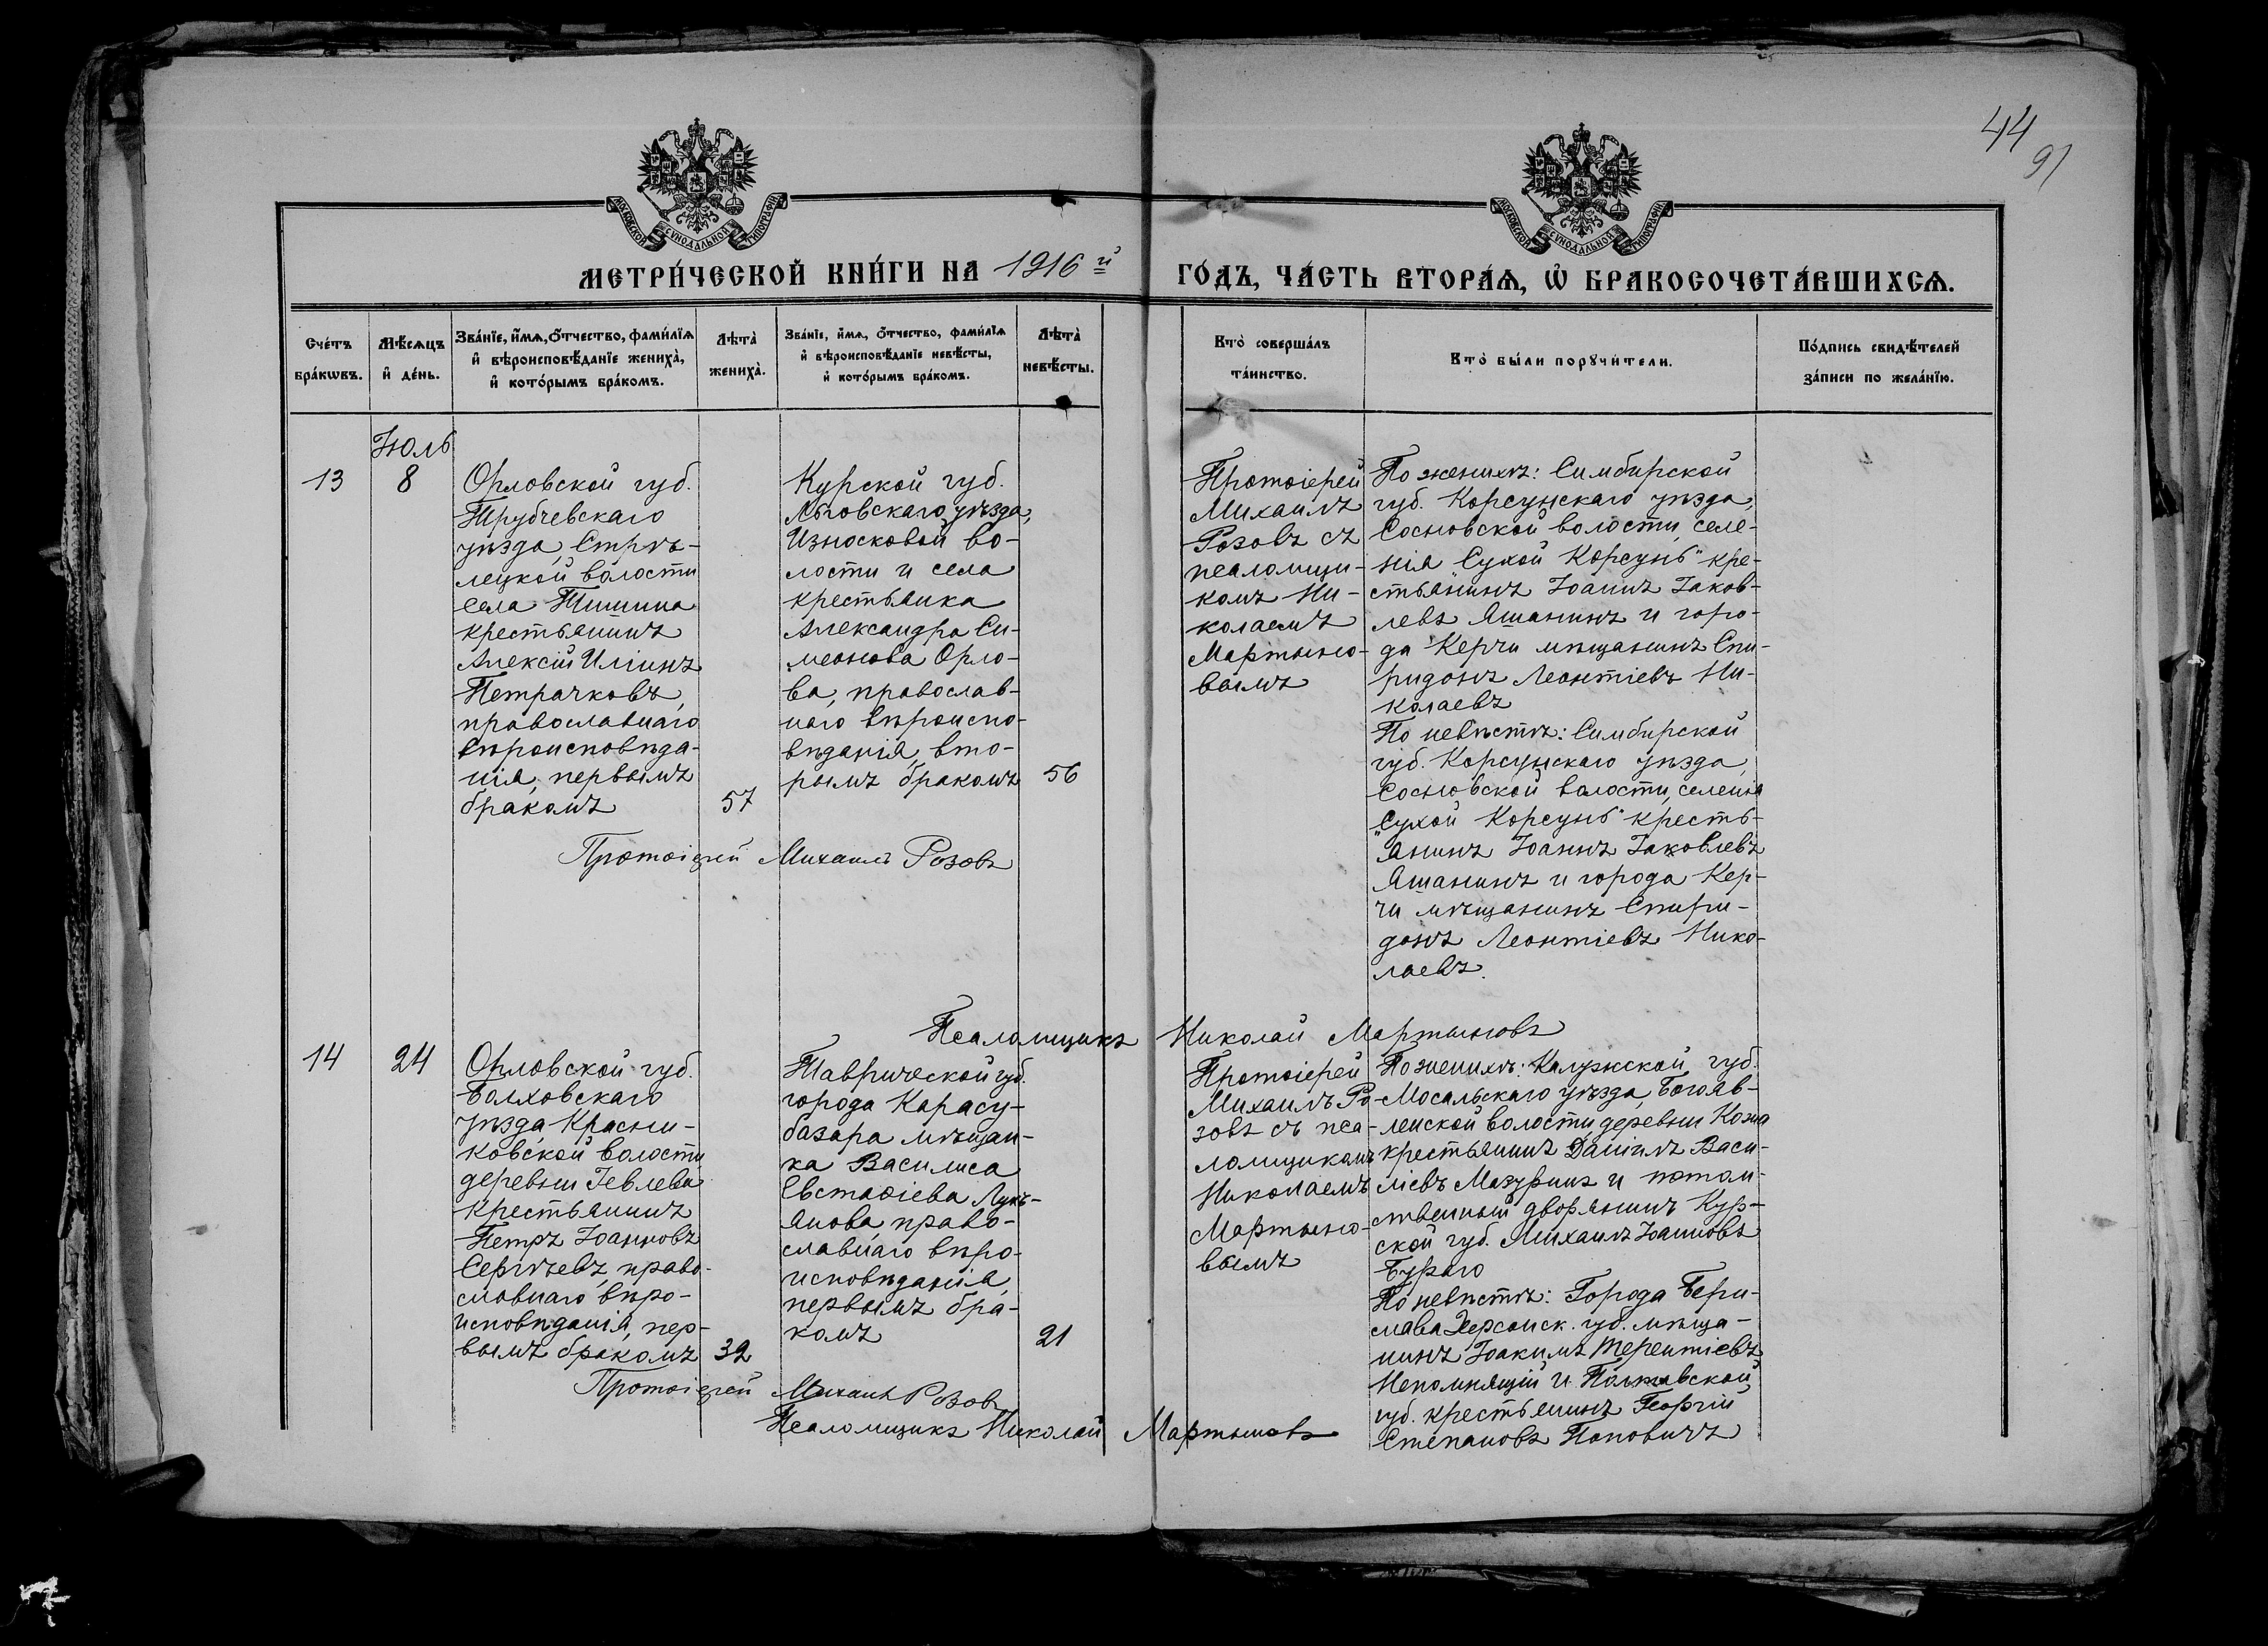 44
91
МОСКОВСКОЙ СѴНОДАЛЬНОЙ ТИПОГРАФІИ
МОСКОВСКОЙ СѴНОДАЛЬНОЙ ТИПОГРАФІИ
МЕТРИ́ЧЕСКОЙ КНИ́ГИ НА 1916 й ГО́ДЪ, ЧА́СТЬ ВТОРА́Ѧ, Ѡ҆ БРАКОСОЧЕТА́ВШИХСѦ.
Сче́тъ
бра́кѡвъ.
Мѣ́сѧцъ
и҆ де́нь.
Зва́нїе, и҆́мѧ, о҆́тчество, фами́лїѧ
и҆ вѣроисповѣ́данїе жениха̀,
и҆ кото́рымъ бра́комъ.
Лѣта̀
жениха̀.
Зва́нїе, и҆́мѧ, о҆́тчество, фами́лїѧ
и҆ вѣроисповѣ́данїе невѣ́сты,
и҆ кото́рымъ бра́комъ.
Лѣта̀
невѣ́сты.
Кто̀ соверша́лъ
та́инство.
Кто̀ бы́ли порꙋчи́тели.
По́дпись свидѣ́телей
за́писи по жела́нїю.
Іюль
13
8
Орловской губ.
Трубчевскаго
уѣзда, Стрѣ-
лецкой волости
села Тишина
крестьянинъ
Алексій Иліинъ
Петрачковъ,
православнаго
вѣроисповѣда-
нія, первымъ
бракомъ
57
Курской губ.
Льговскаго уѣзда,
Износковой во-
лости и села
крестьянка
Александра Си-
меонова Орло-
ва, православ-
наго вѣроиспо-
вѣданія, вто-
рымъ бракомъ
56
Протоіерей
Михаилъ
Розовъ съ
псаломщи-
комъ Ни-
колаемъ
Мартыно-
вымъ
По женихѣ: Симбирской
губ. Корсунскаго уѣзда,
Сосновской волости, селе-
нія "Сухой Корсунь" кре-
стьянинъ Іоаннъ Іаков-
левъ Ашанинъ и горо-
да Керчи мѣщанинъ Спи-
ридонъ Леонтіевъ Ни-
колаевъ
По невѣстѣ: Симбирской
губ. Корсунскаго уѣзда,
Сосновской волости, селенія
"Сухой Корсунь" кресть-
янинъ Іоаннъ Іаковлевъ
Ашанинъ и города Кер-
чи мѣщанинъ Спири-
донъ Леонтіевъ Нико-
лаевъ.
Протоіерей Михаилъ Розовъ
Псаломщикъ Николай Мартыновъ
14
24
Орловской губ.
Болховскаго
уѣзда, Красни-
ковской волости
деревни Іевлева
крестьянинъ
Петръ Іоанновъ
Сергѣевъ, право-
славнаго вѣро-
исповѣданія, пер-
вымъ бракомъ
32
Таврической губ.
города Карасу-
базара мѣщан-
ка Василиса
Евстафіева Лукь-
янова, право-
славнаго вѣро-
исповѣданія,
первымъ бра-
комъ
21
Протоіерей
Михаилъ Ро-
зовъ съ пса-
ломщикомъ
Николаемъ
Мартыно-
вымъ
По женихѣ: Калужской губ.
Мосальскаго уѣзда, Богояв-
ленской волости, деревни
крестьянинъ Даніилъ Васи-
ліевъ Мазуринъ и потом-
ственный дворянинъ Кур-
ской губ. Михаилъ Іоанновъ
Бураго
По невѣстѣ: Города Бери-
слава Херсонск. губ. мѣща-
нинъ Іоакимъ Терентіевъ
Непомнящій и Полтавской
губ. крестьянинъ Георгій
Степановъ Поповичъ
Протоіерей Михаилъ Розовъ
Псаломщикъ Николай Мартыновъ